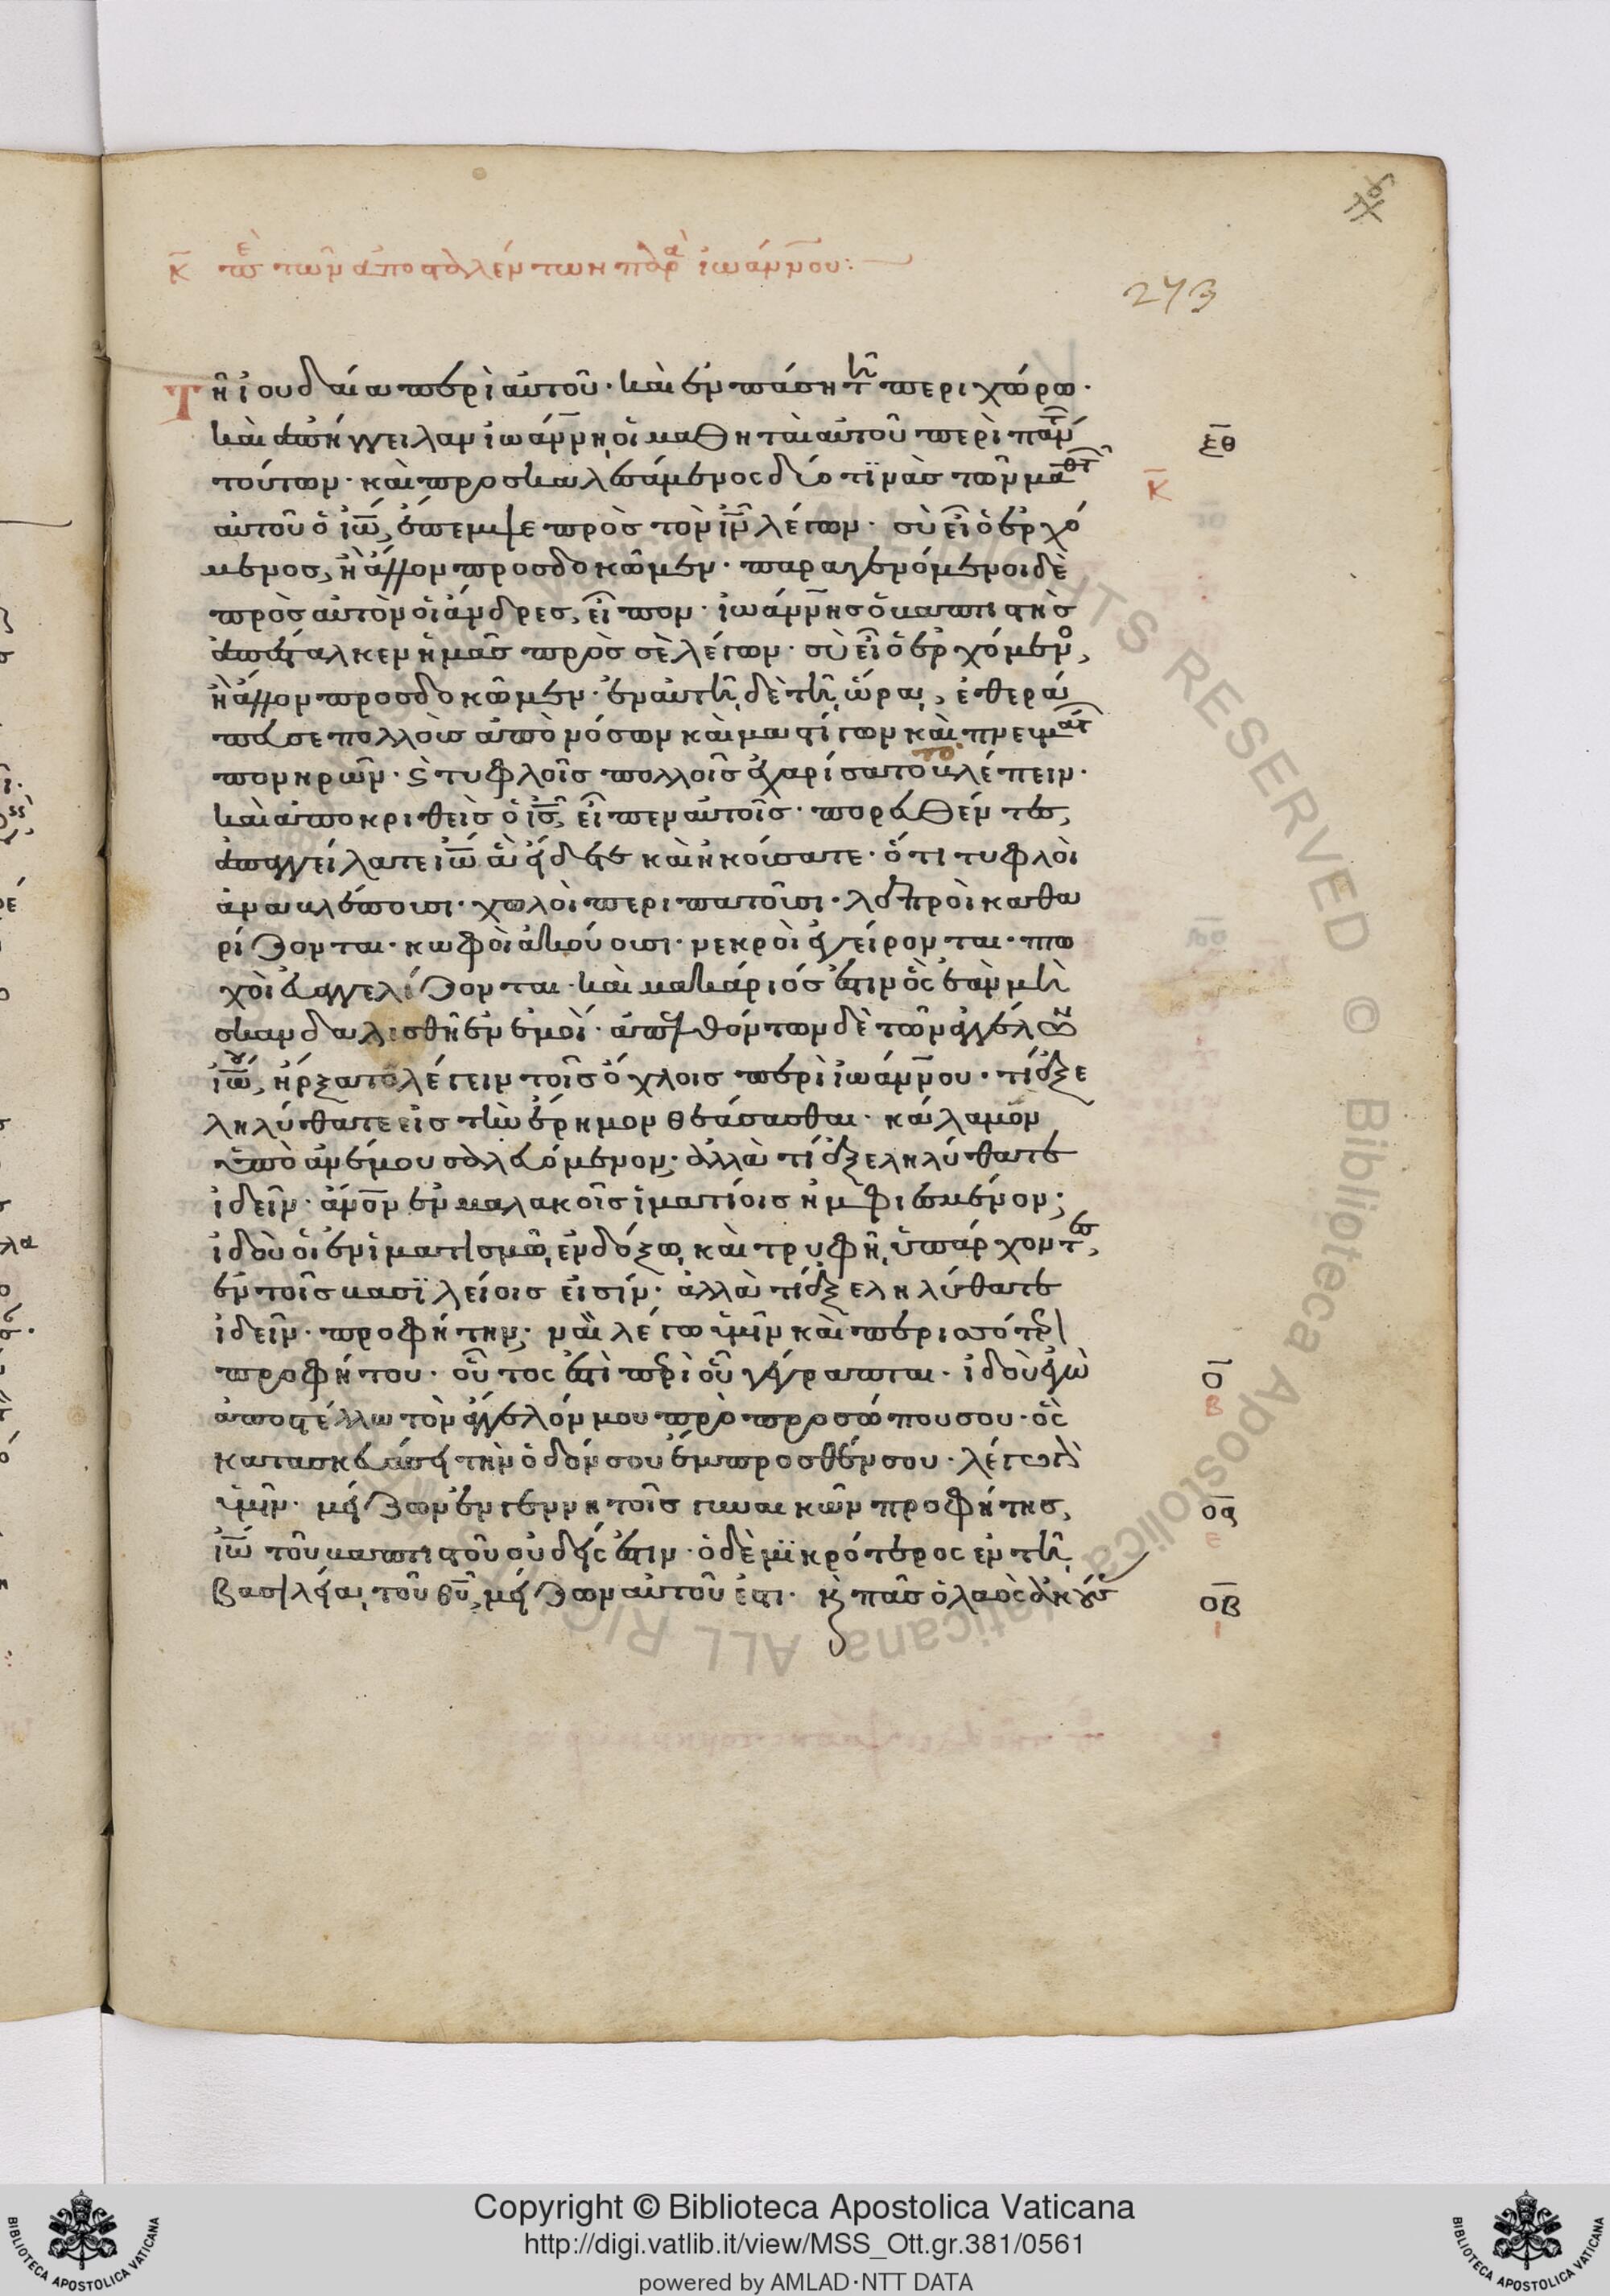 κ̅ πε̅ τῶν ἀποσταλέντων παρὰ ἰωάννου:
273
Τῆ ἰουδαία περὶ αὐτοῦ· καὶ ἐν πάση τῆ περιχώρω·
καὶ ἀπήγγειλαν ἰωάννη, οἱ μαθηταὶ αὐτοῦ περὶ πάντ
ξθ̅
τούτων· καὶ προσκαλεσάμενος δύο τϊνὰς τῶν μαθτ
κ̅
αὐτοῦ ὁ ἰω̅, ἔπεμψε πρὸς τὸν ἰν̅ λέγων· σὺ εἶ ὁ ἐρχό
μενος, ἢ ἄλλον προσδοκῶμεν· παραγενόμενοι δὲ
πρὸς αὐτὸν οἱ ἄνδρες, εἶπον· ἰωάννης ὁ βαπτιστὴς
ἀπέσταλκεν ἡμᾶς πρὸς σὲ λέγων· σὺ εἶ ὁ ἐρχόμενο,
ἢ ἄλλον προσδοκῶμεν· ἐν αὐτῆ, δὲ τῆ, ὥρα, ἐθερά
πευσε πολλοὺς ἀπὸ νόσων καὶ μαστίγων καὶ πνευμάτ
πονηρῶν· ϛ τυφλοῖς πολλοῖς ἐχαρίσατο τὸ βλέπειν·
καὶ ἀποκριθεὶς ὁ ἰς̅, εἶπεν αὐτοῖς· πορευθέντες,
ἀπαγγείλατε ἰω̅ ἃ εἴδετε καὶ ἠκούσατε· ὅτι τυφλοὶ
ἀναβλέπουσι· χωλοὶ περιπατοῦσι· λεπροὶ καθα
ρίζονται· κωφοὶ ἀκούουσι· νεκροὶ ἐγείρονται· πτω
χοὶ εὐαγγελίζονται· καὶ μακάριός ἐστιν ὃς ἐὰν μὴ
σκανδαλισθῆ ἐν ἐμοὶ· ἀπελθόντων δὲ τῶν ἀγγέλων
ἰω̅ου, ἤρξατο λέγειν τοῖς ὄχλοις περὶ ἰωάννου· τί ἐξε
ληλύθατε εἰς τὴν ἔρημον θεάσασθαι· κάλαμον
ὑπὸ ἀνέμου σαλευόμενον; ἀλλὰ τί ἐξεληλύθατε
ἰδεῖν· ἀνον̅ ἐν μαλακοῖς ἱματίοις ἠμφιεσμένον;
ἰδοὺ οἱ ἐν ἱματισμῶ, ἐνδόξω, καὶ τρυφῆ, ὑπάρχοντες,
ἐν τοῖς βασϊλείοις εἰσίν· ἀλλὰ τί ἐξεληλύθατε
ἰδεῖν· προφήτην; ναὶ λέγω ὑμῖν καὶ περισσότερ
προφήτου· οὗτος ἐστὶ περὶ οὗ γέγραπται· ἰδοὺ ἐγὼ
ο̅
ἀποστέλλω τὸν ἄγγελόν μου πρὸ προσώπου σου· ὃς
β
κατασκευάσει τὴν ὁδόν σου ἔμπροσθέν σου· λέγω δὲ
ὑμῖν· μείζων ἐν γεννητοῖς γυναικῶν προφήτης,
οα̅
ἰω̅ τοῦ βαπτιστοῦ οὐδείς ἐστιν· ὁ δὲ μϊκρότερος ἐν τῆ,
ε
βασιλεία, τοῦ θυ̅, μείζων αὐτοῦ ἐστι· κ πᾶς ὁ λαὸς ἀκούσ
οβ̅
ι
Copyright © Biblioteca Apostolica Vaticana
http://digi.vatlib.it/view/MSS_Ott.gr.381/0561
powered by AMLAD·NTT DATA